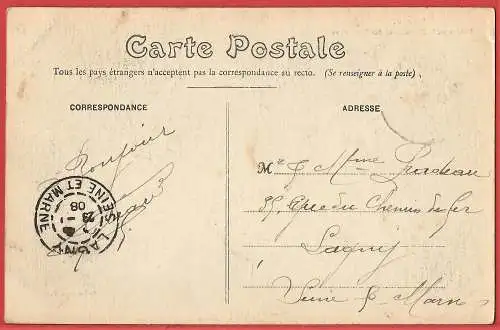 Carte Postale
Tous les pays étrangers n'acceptent pas la correspondance au recto. (Se renseigner à la poste).
CORRESPONDANCE
ADRESSE
Bonjour
LAGNY
SEINE ET MARNE
08
Mr & Mme
Rue du Chemin de fer
Lagny
Seine & Marne